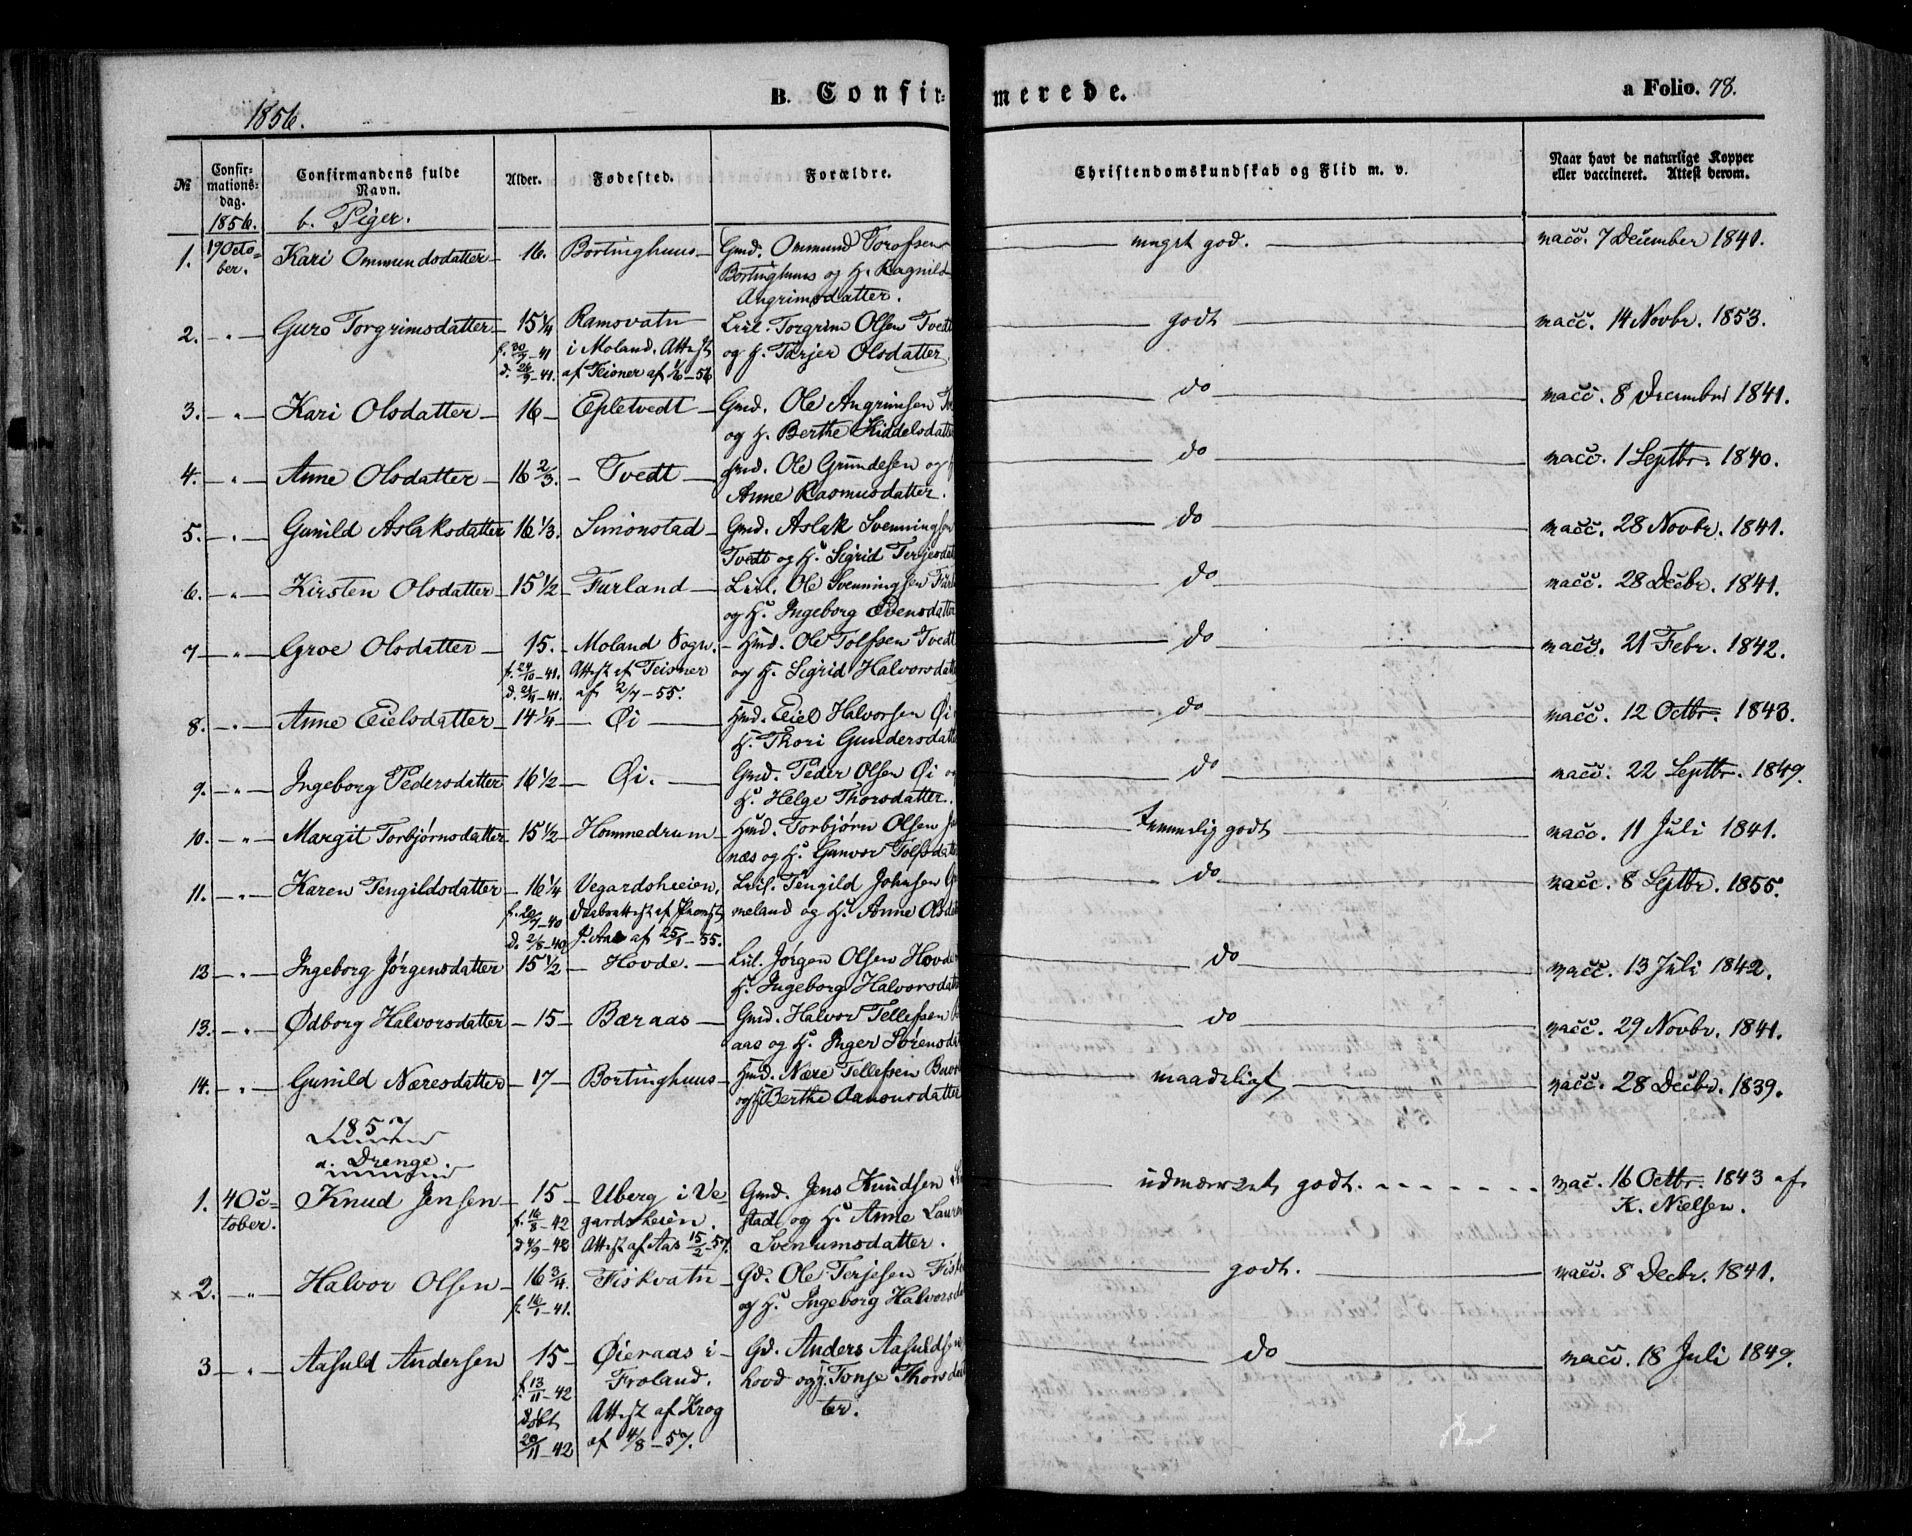 1856. B. Confir- merede. a Folio. 78.
№ Confir-mations-dag. Confirmandens fulde Navn. Alder. Fødested. Forældre. Christendomskundskab og Flid m. v. Naar havt de naturlige Kopper eller vaccineret. Attest derom.
1856. b. Piger.
1. 19 Octo- Kari Ommundsdatter 16. Bortinghuus Gmd. Ommund Torofsen meget god. vacc. 7 December 1841.
ber. Bortinghuus og H. Ragnild
Angrimsdatter.
2. " Guro Torgrimsdatter 15 1/4 Ramsvatn Leil. Torgrim Olsen Tvedt godt vacc. 14 Novbr. 1853.
f. 30/7-41 i Moland. Attest og H. Tarjer Olsdatter
d. 26/9-41. af Teisner af 1/6-56
3. " Kari Olsdatter 16 Epletvedt Gmd. Ole Angrimsen do vacc. 8 December 1841.
og H. Berthe Kiddelsdatter
4. " Anne Olsdatter 16 2/3. Tvedt Gmd. Ole Grundesen og do vacc. 1 Septbr. 1840.
Anne Rasmusdatter.
5. " Gunild Aslaksdatter 16 1/3. Simonstad Gmd. Aslak Svenningsen do vacc. 28 Novbr. 1841.
Tvedt og H. Sigrid Terjesdat
6. " Kirsten Olsdatter 15 1/2 Furland Leil. Ole Svenningsen Furl do vacc. 28 Decbr. 1841.
og H. Ingeborg Evensdatter
7 " Groe Olsdatter 15. Moland Sogn. Hmd. Ole Tolfsen Tvedt do vacc. 21 Febr. 1842.
f. 24/10-41. Attest af Teisner og H. Sigrid Halvorsdatt
af 2/7-55.
8. " Anne Eielsdatter 14 1/4 Øi Hmd. Eiel Halvorsen Øi do vacc. 12 Octbr. 1843.
H. Thori Gundersdatt
9. " Ingeborg Pedersdatter 16 1/2 Øi. Gmd. Peder Olsen Øi og do vacc. 22 Septbr. 1849.
H. Helge Thorsdatter.
10. " Margit Torbjørnsdatter 15 1/2 Hommedrum Hmd. Torbjørn Olsen temmelig godt vacc. 11 Juli 1841.
næs og H. Gunvor Tolfsdatt
11. " Karen Tengildsdatter 16 1/4 Vegardsheien. Leil. Tengild Johnsen do vacc. 8 Septbr. 1855.
f. 20/7-40 Daabsattest af Provst meland og H. Anne Olsdat
d. 2/8-40 J. Aas af 25/1-55.
12 " Ingeborg Jørgensdatter 15 1/2 Hovde. Leil. Jørgen Olsen Hovde do vacc. 13 Juli 1842.
H. Ingeborg Halvorsdatt
13. " Ødborg Halvorsdatter 15 Bæraas Gmd. Halvor Tellefsen do vacc. 29 Novbr. 1841.
aas og H. Inger Sørensdat
14. " Gunild Næresdatter 17 Bortinghuus Hmd. Nære Tellefsen maadeligt vacc. 28 Decbr. 1839.
og H. Berthe Aanonsdatter
1857
a. Drenge
1. 4 Oc- Knud Jensen 15 Uberg i Ve- Gmd. Jens Knudsen udmærket godt. vac. 16 Octbr. 1843 af
tober. f. 16/8-42 gardsheien. stad og H. Anne Lauren K. Nielsen.
d 4/9-42 Attest af Aas 15/2-57. Sveniumsdatter.
x 2. " Halvor Olsen 16 3/4. Fiskvatn Gd. Ole Terjesen Fisk godt. vacc. 8 Decbr. 1841.
f. 16/1-41. og H. Ingeborg Halvorsda
3 " Aasuld Andersen 15 Øieraas i Gd. Anders Aasuldsen do vacc. 18 Juli 1849.
f. 13/11-42 Froland. hovd og H. Tonje Thorsdat
døbt Attest af Krog ter.
20/11-42 af 4/8-57.